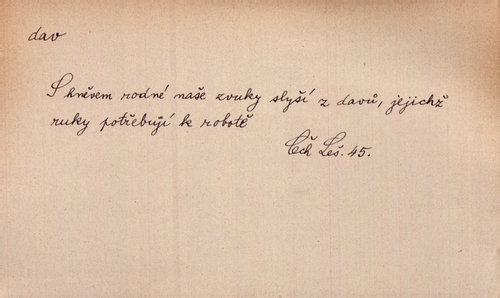 dav
S hněvem rodné naše zvuky slyší z davů, jejichž
ruky potřebují k robotě
Čch Leš. 45.